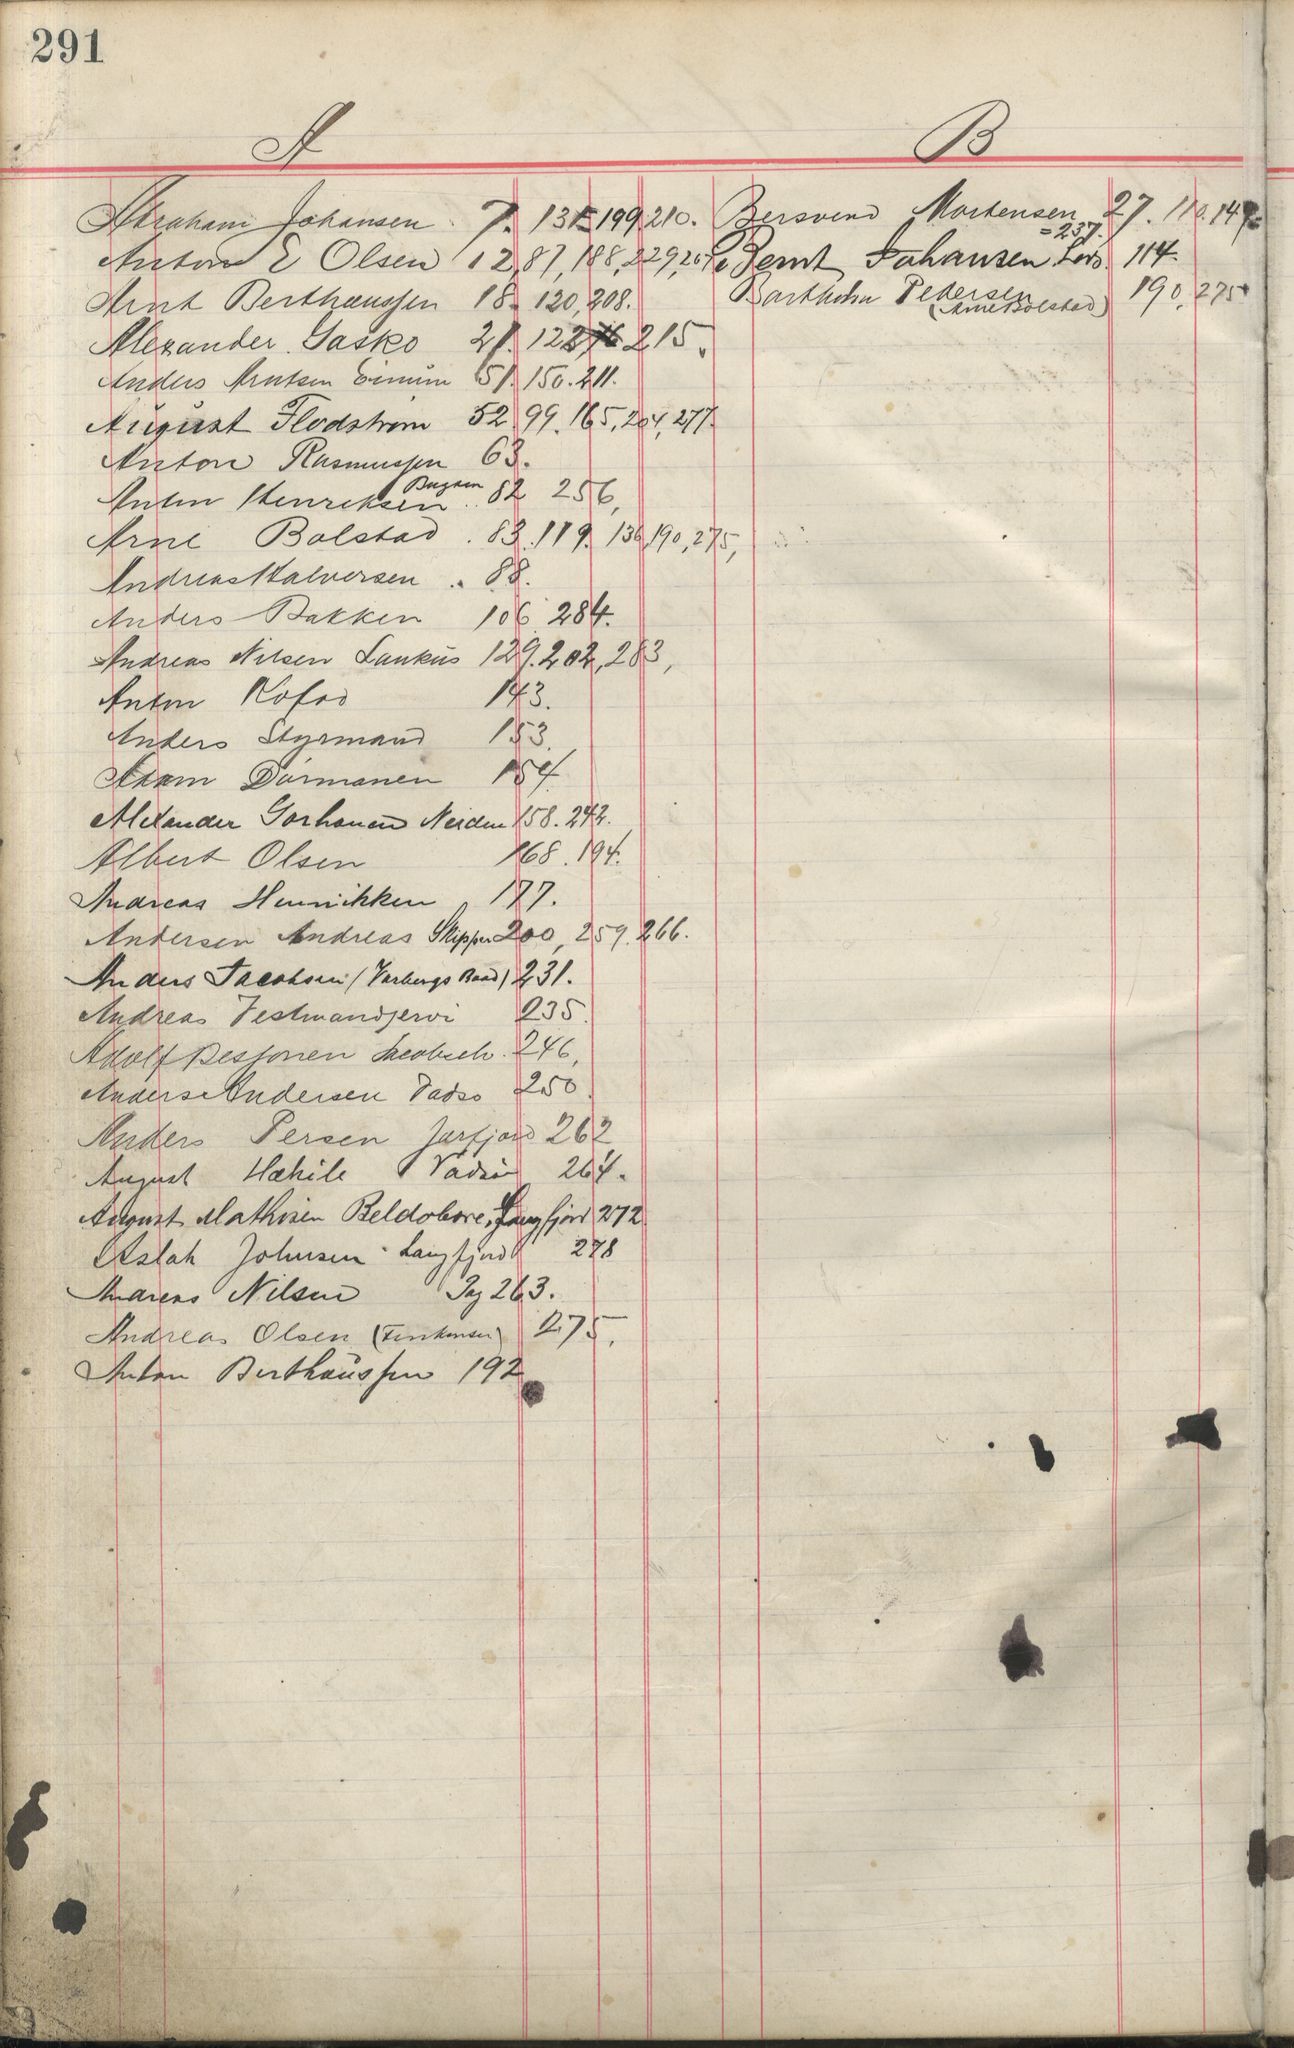 291
A
Abraham Johansen 7. 131 199 210.
Anton E Olsen 12, 87, 188, 229,
Arnt Berthaussen 18. 120, 208.
Alexander Gasko 21. 122 215.
Anders Arntsen 51. 150. 211.
August Flodstrøm 52. 99. 165, 204, 277.
Anton Rasmussen 63.
Anton Henriksen Bugøen 82 256,
Arne Bolstad . 83. 119. 136, 190, 275,
Andreas Halversen .. 88.
Anders Bakken 106 284.
Andreas Nilsen Lankus 129. 202, 283,
Anton Kofod 143.
Anders Styrmand 153.
Adam Dørmanen 154.
Alexander Neiden 158. 242.
Albert Olsen 168. 194.
Andreas Henrikken 177.
Andersen Andreas Skipper 200, 259. 266.
Anders Jacobsen (Varbergs Baad) 231.
Andreas 235.
Adolf 246,
Anders Andersen Vadsø 250.
Anders Persen Jarfjord 262
August Hækile Vadsø 264.
August Mathisen Langfjord 272
Aslak Johnsen Langfjord 278
Andreas Nilsen Pag 263.
Andreas Olsen 275,
Anton Berthaussen 192
B
Bersvend Mortensen 27. 110. 149
= 237.
Bernt Johansen Lods. 114.
Bartholm Pedersen 190, 275
(Arne Bolstad)